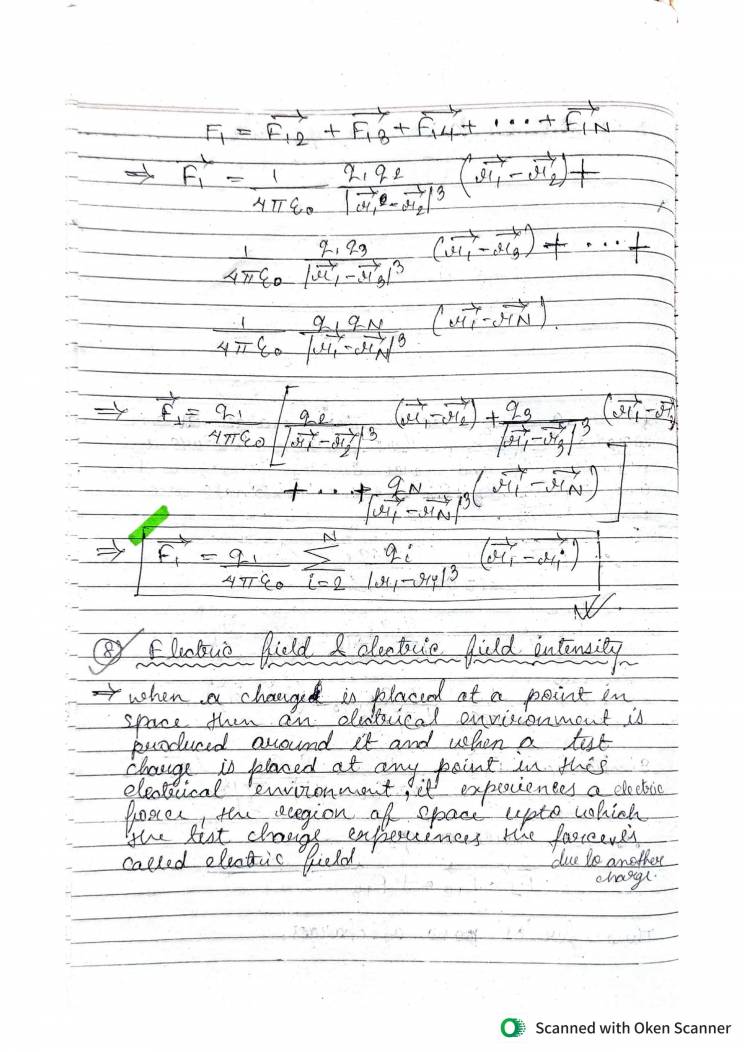 F₁ = F⃗₁₂ + F⃗₁₃ + F⃗₁₄ + ... + F⃗₁N
⇒ F⃗₁ = 1/4πε₀ q₁q₂/|r⃗₁ - r⃗₂|³ (r⃗₁ - r⃗₂) +
1/4πε₀ q₁q₃/|r⃗₁ - r⃗₃|³ (r⃗₁ - r⃗₃) + ... +
1/4πε₀ q₁qN/|r⃗₁ - r⃗N|³ (r⃗₁ - r⃗N).
⇒ F⃗₁ = q₁/4πε₀ [q₂/|r⃗₁ - r⃗₂|³ (r⃗₁ - r⃗₂) + q₃/|r⃗₁ - r⃗₃|³ (r⃗₁ - r⃗₃)
+ ... + qN/|r⃗₁ - r⃗N|³ (r⃗₁ - r⃗N)]
⇒ F⃗₁ = q₁/4πε₀ N∑i=2 qi/|r₁ - ri|³ (r⃗₁ - r⃗i)
(8) Electric field & electric field intensity
→ when a charged is placed at a point in
space then an electrical environment is
produced around it and when a test
charge is placed at any point in this
electrical environment, it experiences a electric
force, the region of space upto which
the test charge experiences the force is
called electric field.
due to another
charge.
Scanned with Oken Scanner